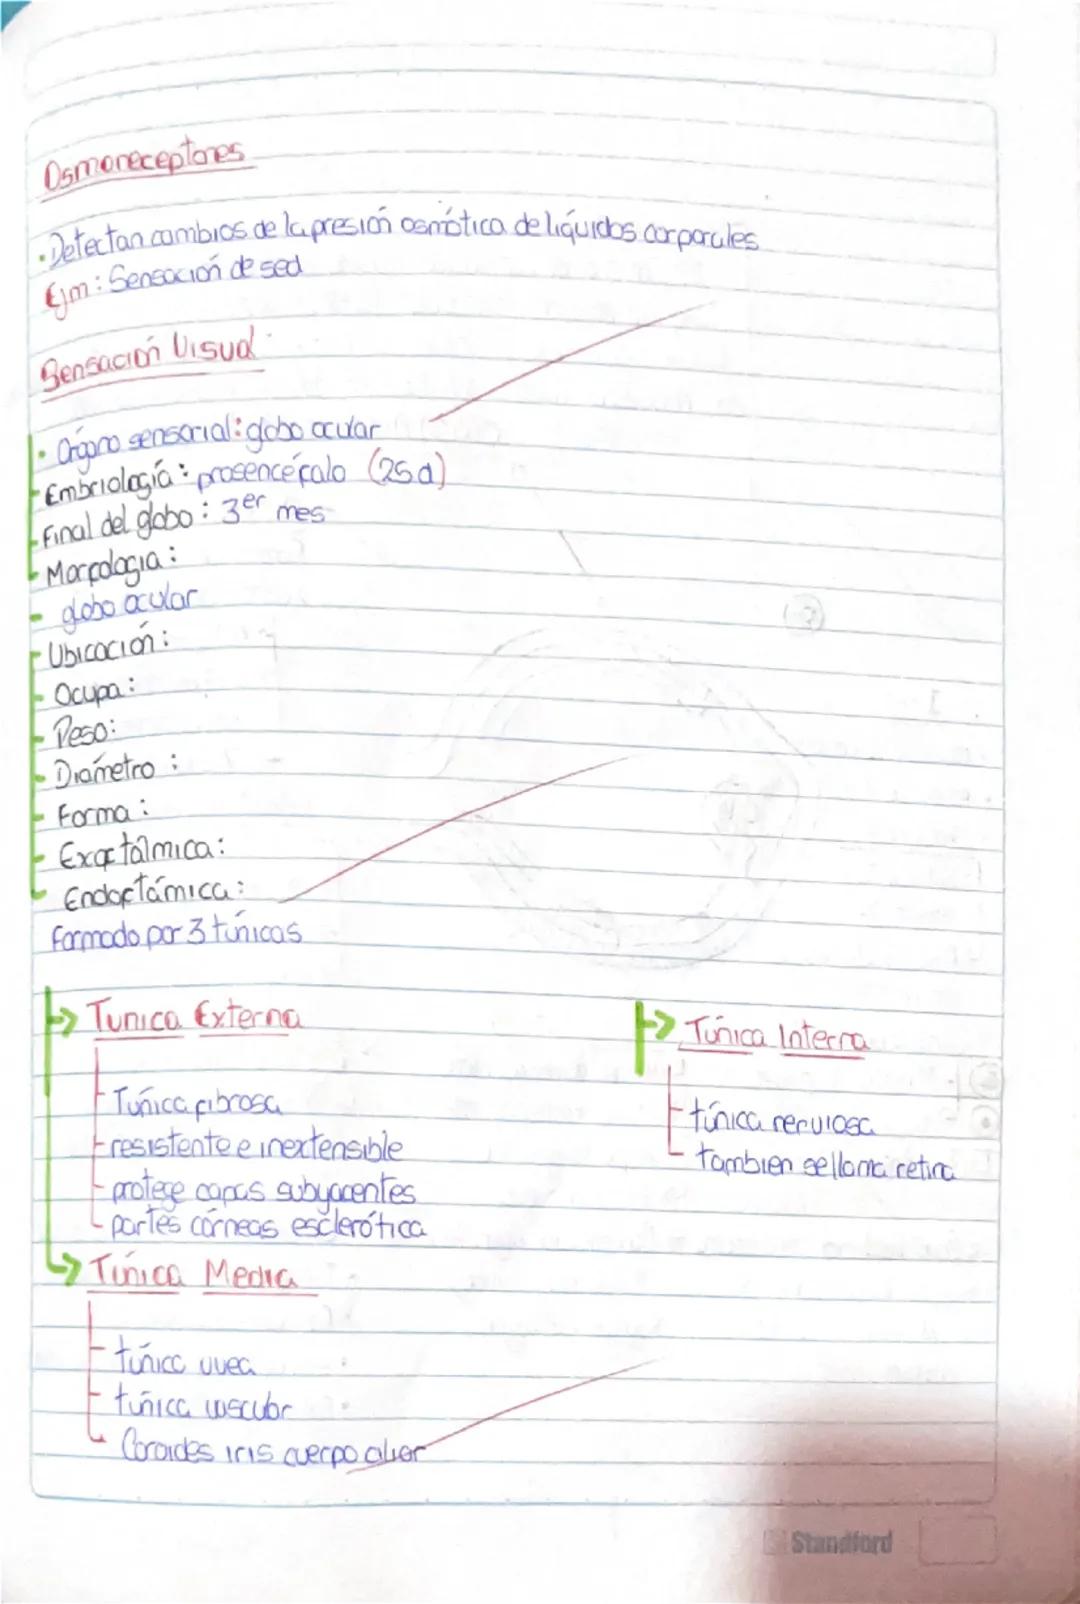 Osmoreceptores
• Detectan cambios de la presión osmótica de líquidos corporales
Ejm: Sensación de sed
Sensación Visual
• Órgano sensorial: globo ocular
- Embriología: prosencéfalo (25d)
- Final del globo: 3er mes
- Morfología:
- globo ocular
- Ubicación:
- Ocupa:
- Peso:
- Diámetro:
- Forma:
- Exoftálmica:
- Endoftámica:
Formado por 3 túnicas
→ Tunica Externa
- Túnica fibrosa
- resistente e inextensible
- protege capas subyacentes
- partes córneas esclerótica
→ Túnica Media
- túnica uvea
- túnica vascular
- Coroides iris cuerpo ciliar
→ Túnica Interna
- túnica nerviosa
- tambien se llama retina
Standford